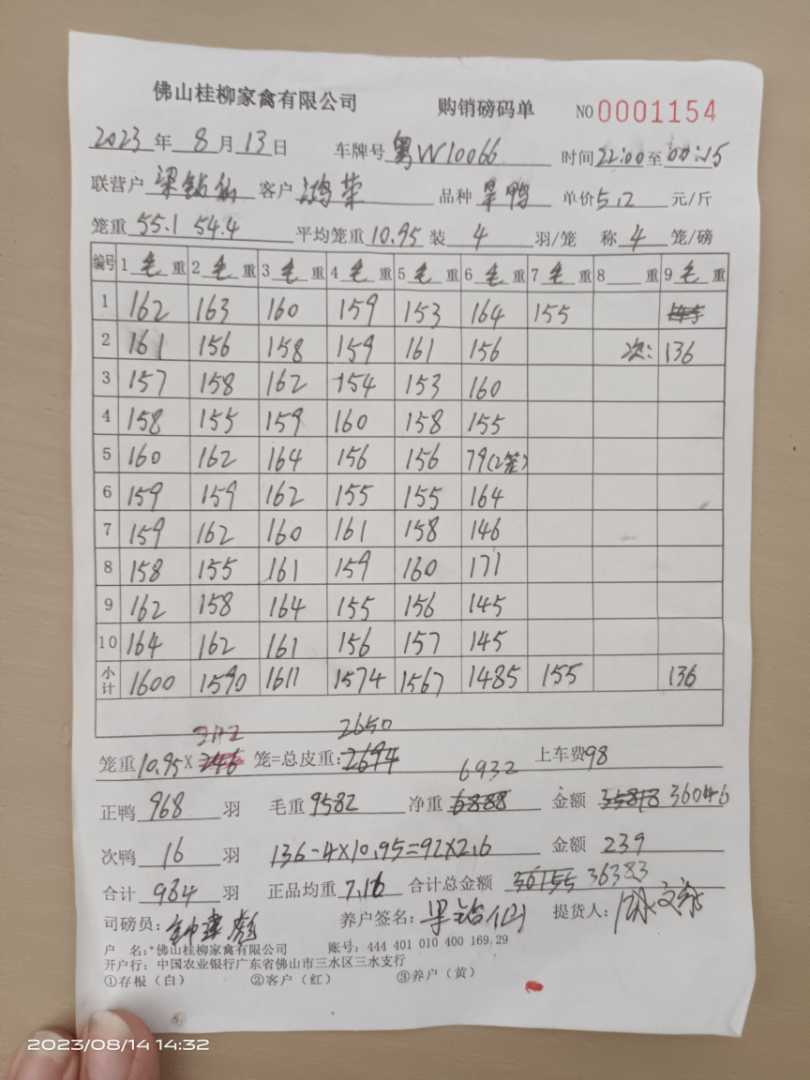 佛山桂柳家禽有限公司 购销磅码单 NO 0001154
2023 年 8 月 13 日 车牌号 粤W10066 时间 22:00 至 00:15
联营户 梁钻仙 客户 鸿荣 品种 旱鸭 单价 5.2 元/斤
笼重 55.1 54.4 平均笼重 10.95 装 4 羽/笼 称 4 笼/磅
编号 1 毛 重 2 毛 重 3 毛 重 4 毛 重 5 毛 重 6 毛 重 7 毛 重 8 重 9 毛 重
1 162 163 160 159 153 164 155
2 161 156 158 159 161 156 次: 136
3 157 158 162 154 153 160
4 158 155 159 160 158 155
5 160 162 164 156 156 79(2笼)
6 159 159 162 155 155 164
7 159 162 160 161 158 146
8 158 155 161 159 160 171
9 162 158 164 155 156 145
10 164 162 161 156 157 145
小计 1600 1590 1611 1574 1567 1485 155 136
242 2650
笼重 10.95 X 246 笼=总皮重: 2694 上车费 98
6932
正鸭 968 羽 毛重 9582 净重 6888 金额 35818 36046
次鸭 16 羽 136-4×10.95=92×2.6 金额 239
合计 984 羽 正品均重 7.16 合计总金额 36155 36383
司磅员: 养户签名: 梁钻仙 提货人:
户 名:*佛山桂柳家禽有限公司 账号: 444 401 010 400 169.29
开户行: 中国农业银行广东省佛山市三水区三水支行
①存根(白) ②客户(红) ③养户(黄)
2023/08/14 14:32